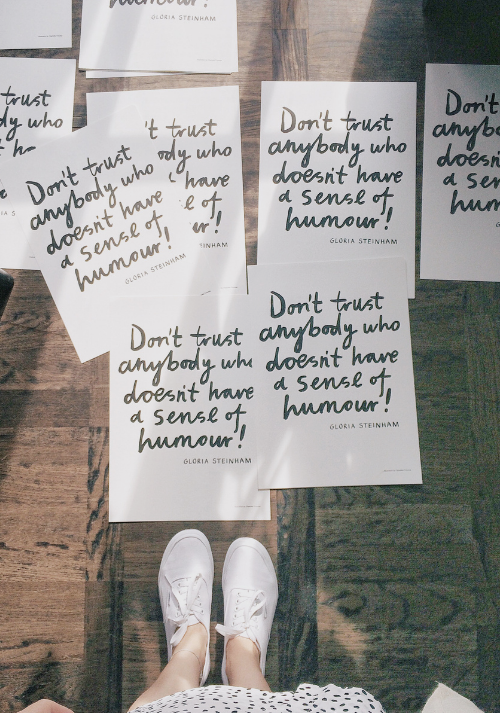 humour!
GLORIA STEINHAM
trust
dy who
't trust
ody who
have
e of
ur!
NHAM
Don't trust
anybody who
doesn't have
a sense of
humour!
GLORIA STEINHAM
Don't trust
anybody who
doesn't have
a sense of
humour!
GLORIA STEINHAM
Don't
anybo
doesn
a sen
hum
Don't trust
anybody who
doesn't have
a sense of
humour!
GLORIA STEINHAM
Don't trust
anybody who
doesn't have
a sense of
humour!
GLORIA STEINHAM